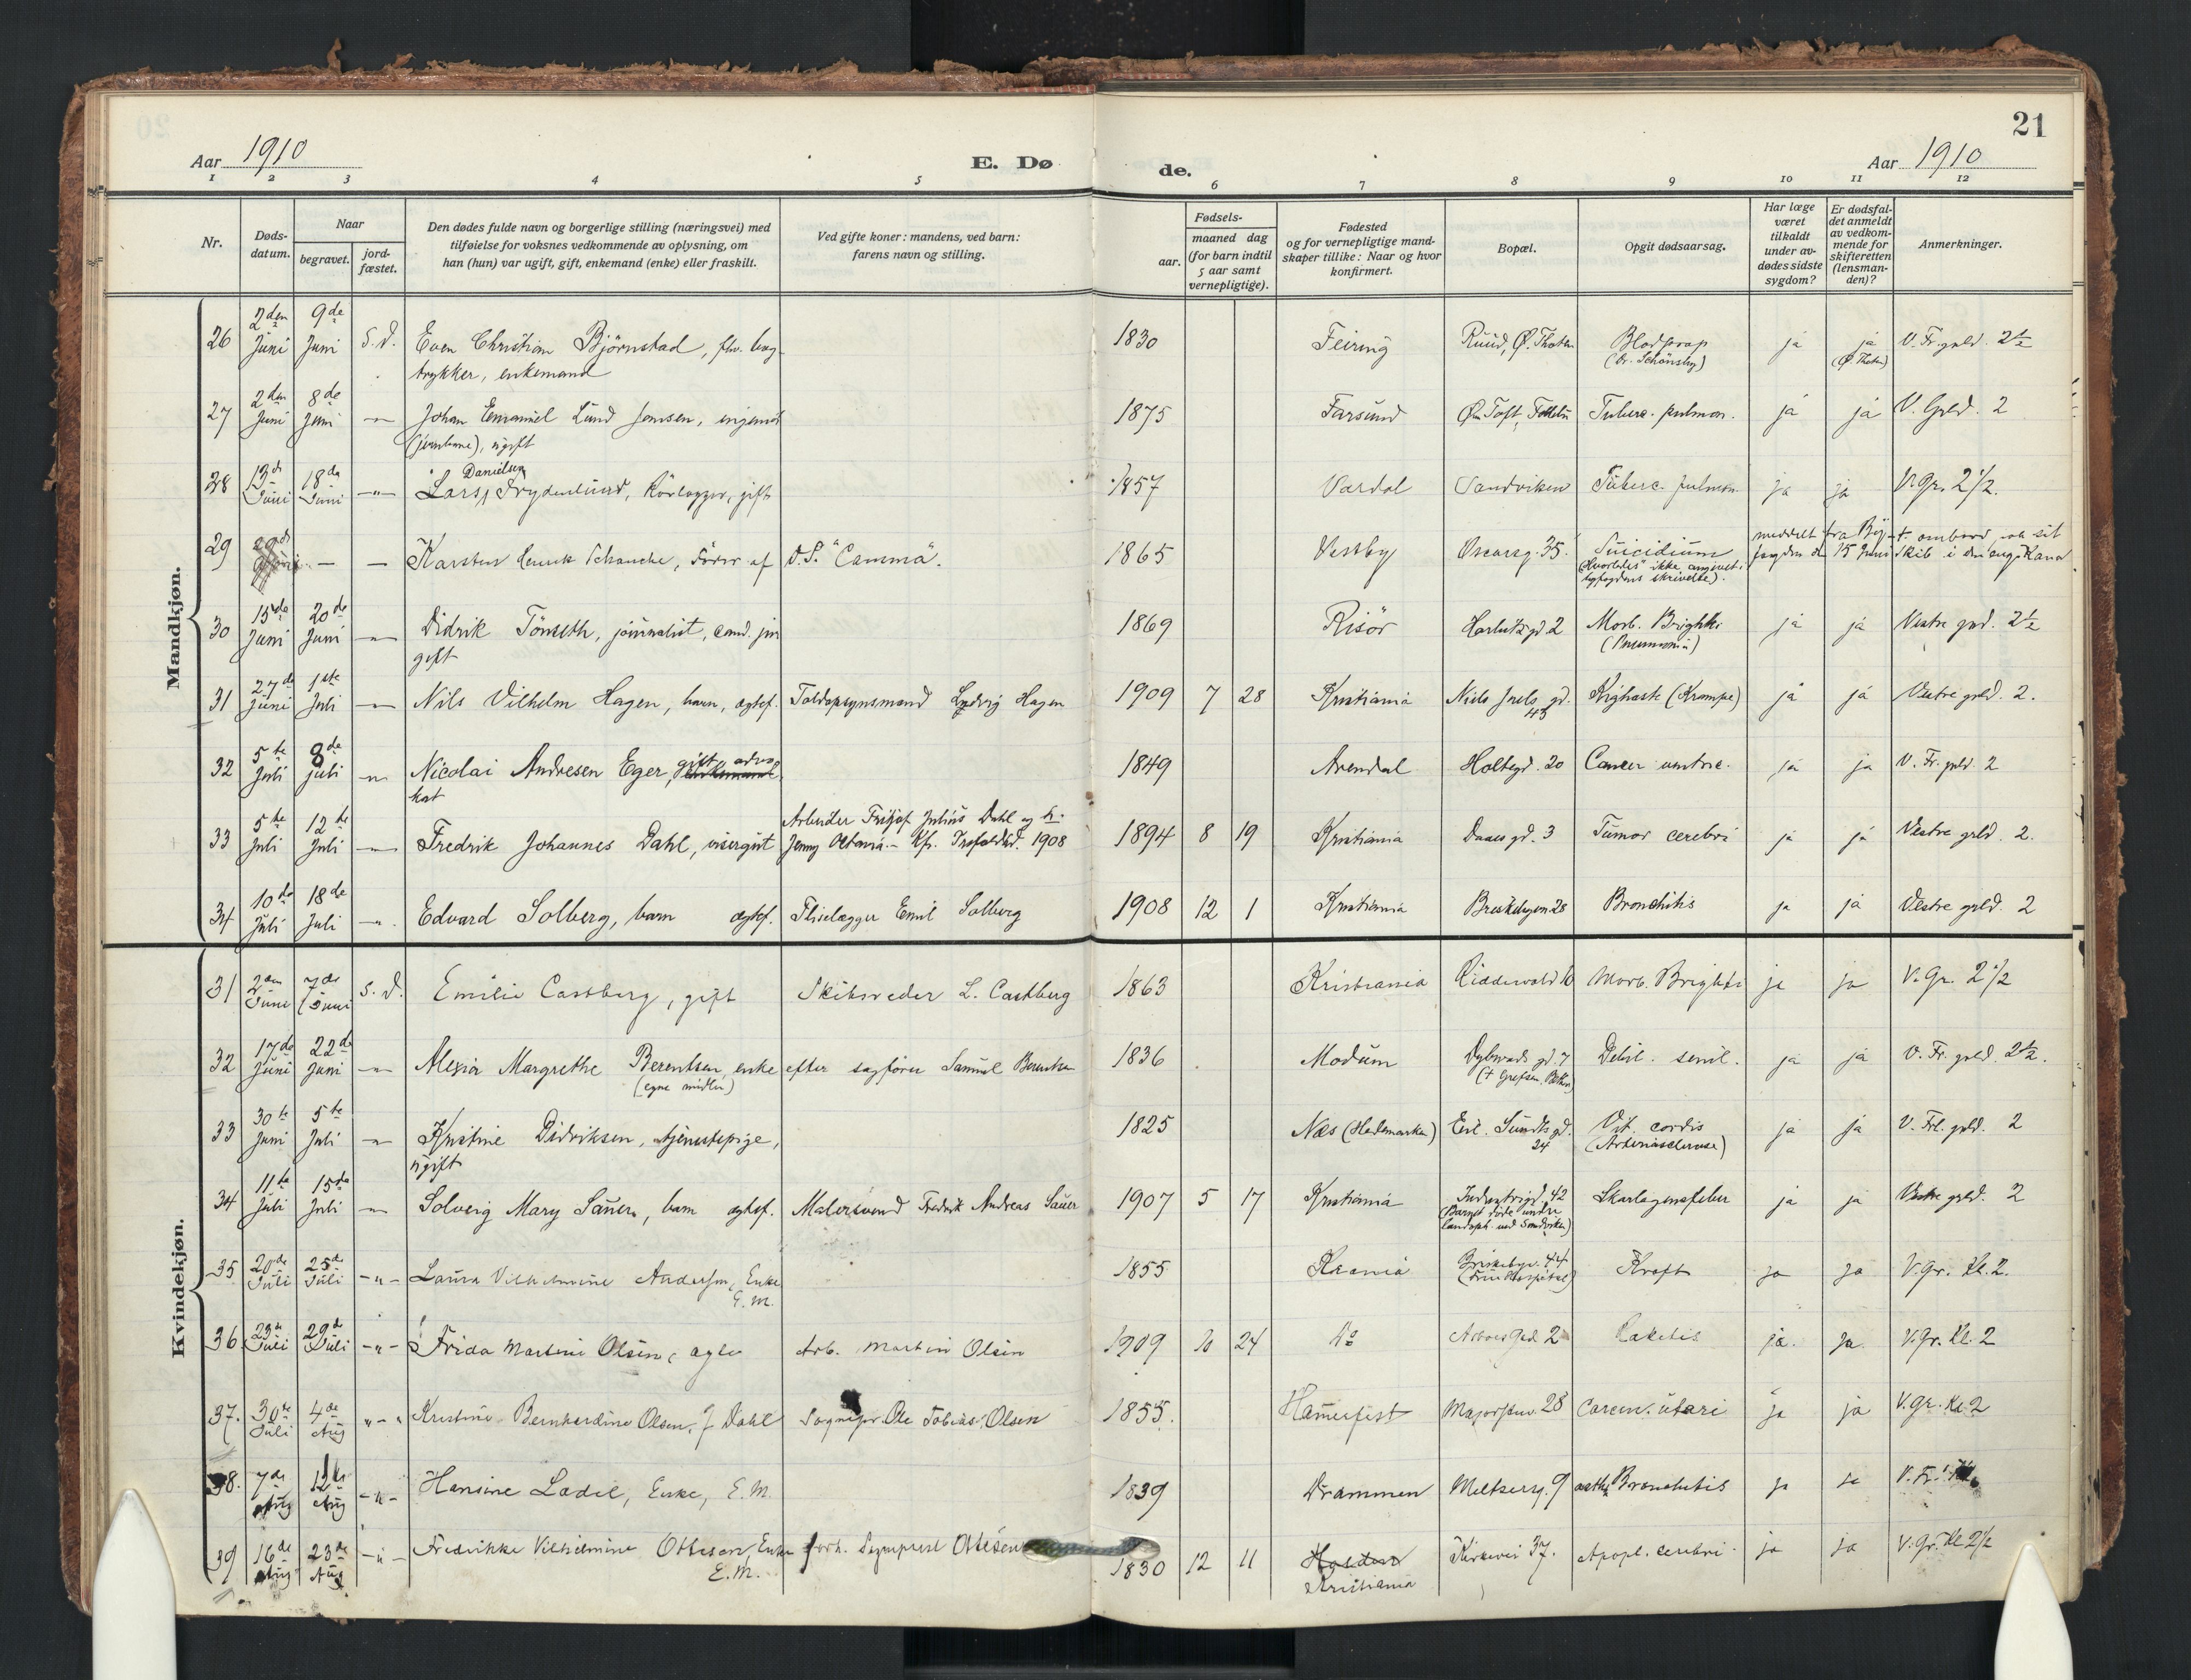 21
Aar 1910
E. Dø
de.
Aar 1910
1 2 3 4 5 6 7 8 9 10 11 12
Nr.
Døds-
datum.
Naar
begravet.
jord-
fæstet.
Den dødes fulde navn og borgerlige stilling (næringsvei) med
tilføielse for voksnes vedkommende av oplysning, om
han (hun) var ugift, gift, enkemand (enke) eller fraskilt.
Ved gifte koner: mandens, ved barn:
farens navn og stilling.
Fødsels-
aar.
maaned dag
(for barn indtil
5 aar samt
vernepligtige).
Fødested
og for vernepligtige mand-
skaper tillike: Naar og hvor
konfirmert.
Bopæl.
Opgit dødsaarsag.
Har læge
været
tilkaldt
under av-
dødes sidste
sygdom?
Er dødsfal-
det anmeldt
av vedkom-
mende for
skifteretten
(lensman-
den)?
Anmerkninger.
Mandkjøn.
2den 9de
26 Juni Juni S.D. Even Christian Bjørnstad, fhv. bog- 1830 Feiring Ruud, Ø. Thoten Blodprop ja ja V. Fr. grld. 2 1/2
trykker, enkemand (Dr. Schönsby) (Ø. Thoten)
2den 8de
27 Juni Juni -"- Johan Emanuel Lund Jonsen, ingeniør 1875 Farsund Tuberc. pulmon. ja ja V. Grld. 2
(jernbane), ugift
13de 18de Danielsen
28 Juni Juni -"- Lars Frydenlund, gift 1857 Vardal Sandviken Tuberc. pulmon. ja ja V. Gr. 2 1/2.
29 — — Karsten Henrik Schanche, Fører af D.S. "Camma". 1865 Vestby Oscarsg. 35. Suicidium meddelt fra By-
fogden d. 15 Juni † ombord paa sit Skib i den eng. Kanal
("Hvorledes" ikke angivet i
byfogdens skrivelse).
15de 20de
30 Juni Juni -"- Didrik Tönseth, journalist, cand. jur 1869 Risör gd. 2 Morb. Brightii ja ja Vestre grd. 2 1/2
gift (Pneumoni)
27de 1ste
31 Juni Juli -"- Nils Vilhelm Hagen, barn, ægtef. Toldopsynsmand Ludvig Hagen 1909 7 28 Kristiania Niels Juels gd. 43 Kighoste (Krampe) ja ja Vestre grld. 2.
5te 8de
32 Juli juli -"- Nicolai Andresen Eger, gift, advo- 1849 Arendal Holtegd. 20 Cancer ventric. ja ja V. Fr. grld. 2
kat
5te 12te Arbeider Fritjof Julius Dahl og h.
33 Juli Juli -"- Fredrik Johannes Dahl, visergut Jenny Octavia.- Kfr. Trefoldigd. 1908 1894 8 19 Kristiania Daaes gd. 3 Tumor cerebri ja ja Vestre grld. 2.
10de 18de
34 Juli Juli -"- Edvard Solberg, barn ægtef. Fliselægger Emil Solberg 1908 12 1 Kristiania Briskebyvn 28 Bronchitis ja ja Vestre grld. 2
Kvindekjøn.
2den 7de
31 Juni Juni S.D. Emilie Castberg, gift Skibsreder L. Castberg 1863 Kristiania Riddervold 10 Morb. Brighti ja ja V. Gr. 2 1/2
17de 22de
32 Juni Juni -"- Alexia Margrethe Berentsen, enke efter sagfører Samuel Berentsen 1836 Modum Dybwads gd. 7 Debil. senil. ja ja V. Fr. grld. 2 1/2.
(egne midler) († Grefsen)
30te 5te
33 Juni Juli -"- Kristine Didriksen, tjenestepige, 1825 Næs (Hedemarken) Eil. Sundts gd. 24 Vit. cordis ja ja V. Fr. grld. 2
ugift (Arteriosclerose)
11te 15de
34 Juli Juli -"- Solveig Mary Sauer, barn ægtef. Malersvend Fredrik Andreas Sauer 1907 5 17 Kristiania Industrigd. 42 Skarlagensfeber ja ja Vestre grld. 2
(Barnet døde under
landoph. ved Sandviken)
20de 25de
35 Juli Juli -"- Laura Vilhelmine Andersen, Enke 1855 Kr.ania Briskebyv. 44 Kræft ja ja V. Gr. Kl. 2.
E. M.
23de 29de
36 Juli Juli -"- Frida Martine Olsen, ægte Arb. Martin Olsen 1909 10 24 Do Rakitis ja. ja. V. Gr. Kl. 2
30te 4de
37. Juli Aug -"- Kristine Bernhardine Olsen, f Dahl Ole Tobias Olsen 1855. Hamerfest Majorstuv. 28 Carcin. uteri ja ja V. Gr. Kl. 2
7de 12te
38. Aug Aug -"- Hansine Ladel, Enke, E. M. 1839 Drammen Meltzersg. 9 Bronchitis ja ja V. Fr.
16de 23de
39 Aug Aug -"- Fredrikke Vilhelmine Ottesen Enke forh. Sogneprest Ottesen 1830 12 11 Kristiania Kirkevei 37. Apopl. cerebri. ja ja V. Gr. Kl 2 1/2
E. M.